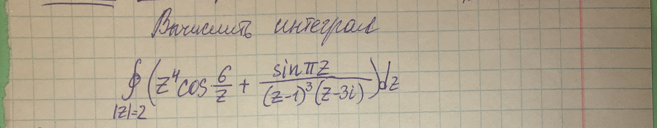 Вычислить интеграл
∮_{|z|=2} (z⁴ cos 6/z + sin πz / ((z-1)³(z-3i))) dz